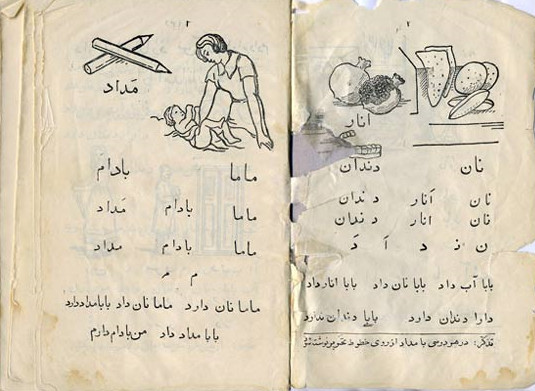 ۲
اَنار
نان دندان
نان اَنار دندان
نان انار دندان
ن نـ د اَ دَ
بابا آب داد بابا نان داد بابا انار داد
دارا دندان دارد بابا دندان ندارد
تذکر: در هر درس با مداد از روی خطوط
۳
مَداد
ماما بادام
ماما بادام مَداد
ماما بادام مداد
م مـ
ماما نان دارد ماما نان داد بابا مداد دارد
بابا مداد داد من بادام دارم